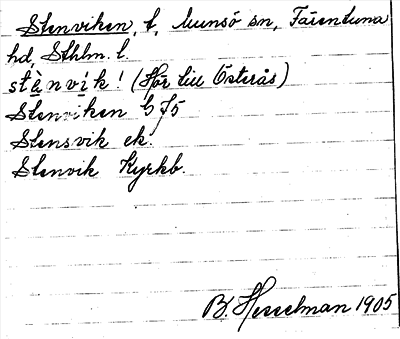 Stenviken, t, Munsö sn, Färentuna
hd, Sthlm. l.
stènvík! (Hör till Österås)
Stenviken G f5
Stensvik ek.
Stenvik Kyrkb.
B. Hesselman 1905